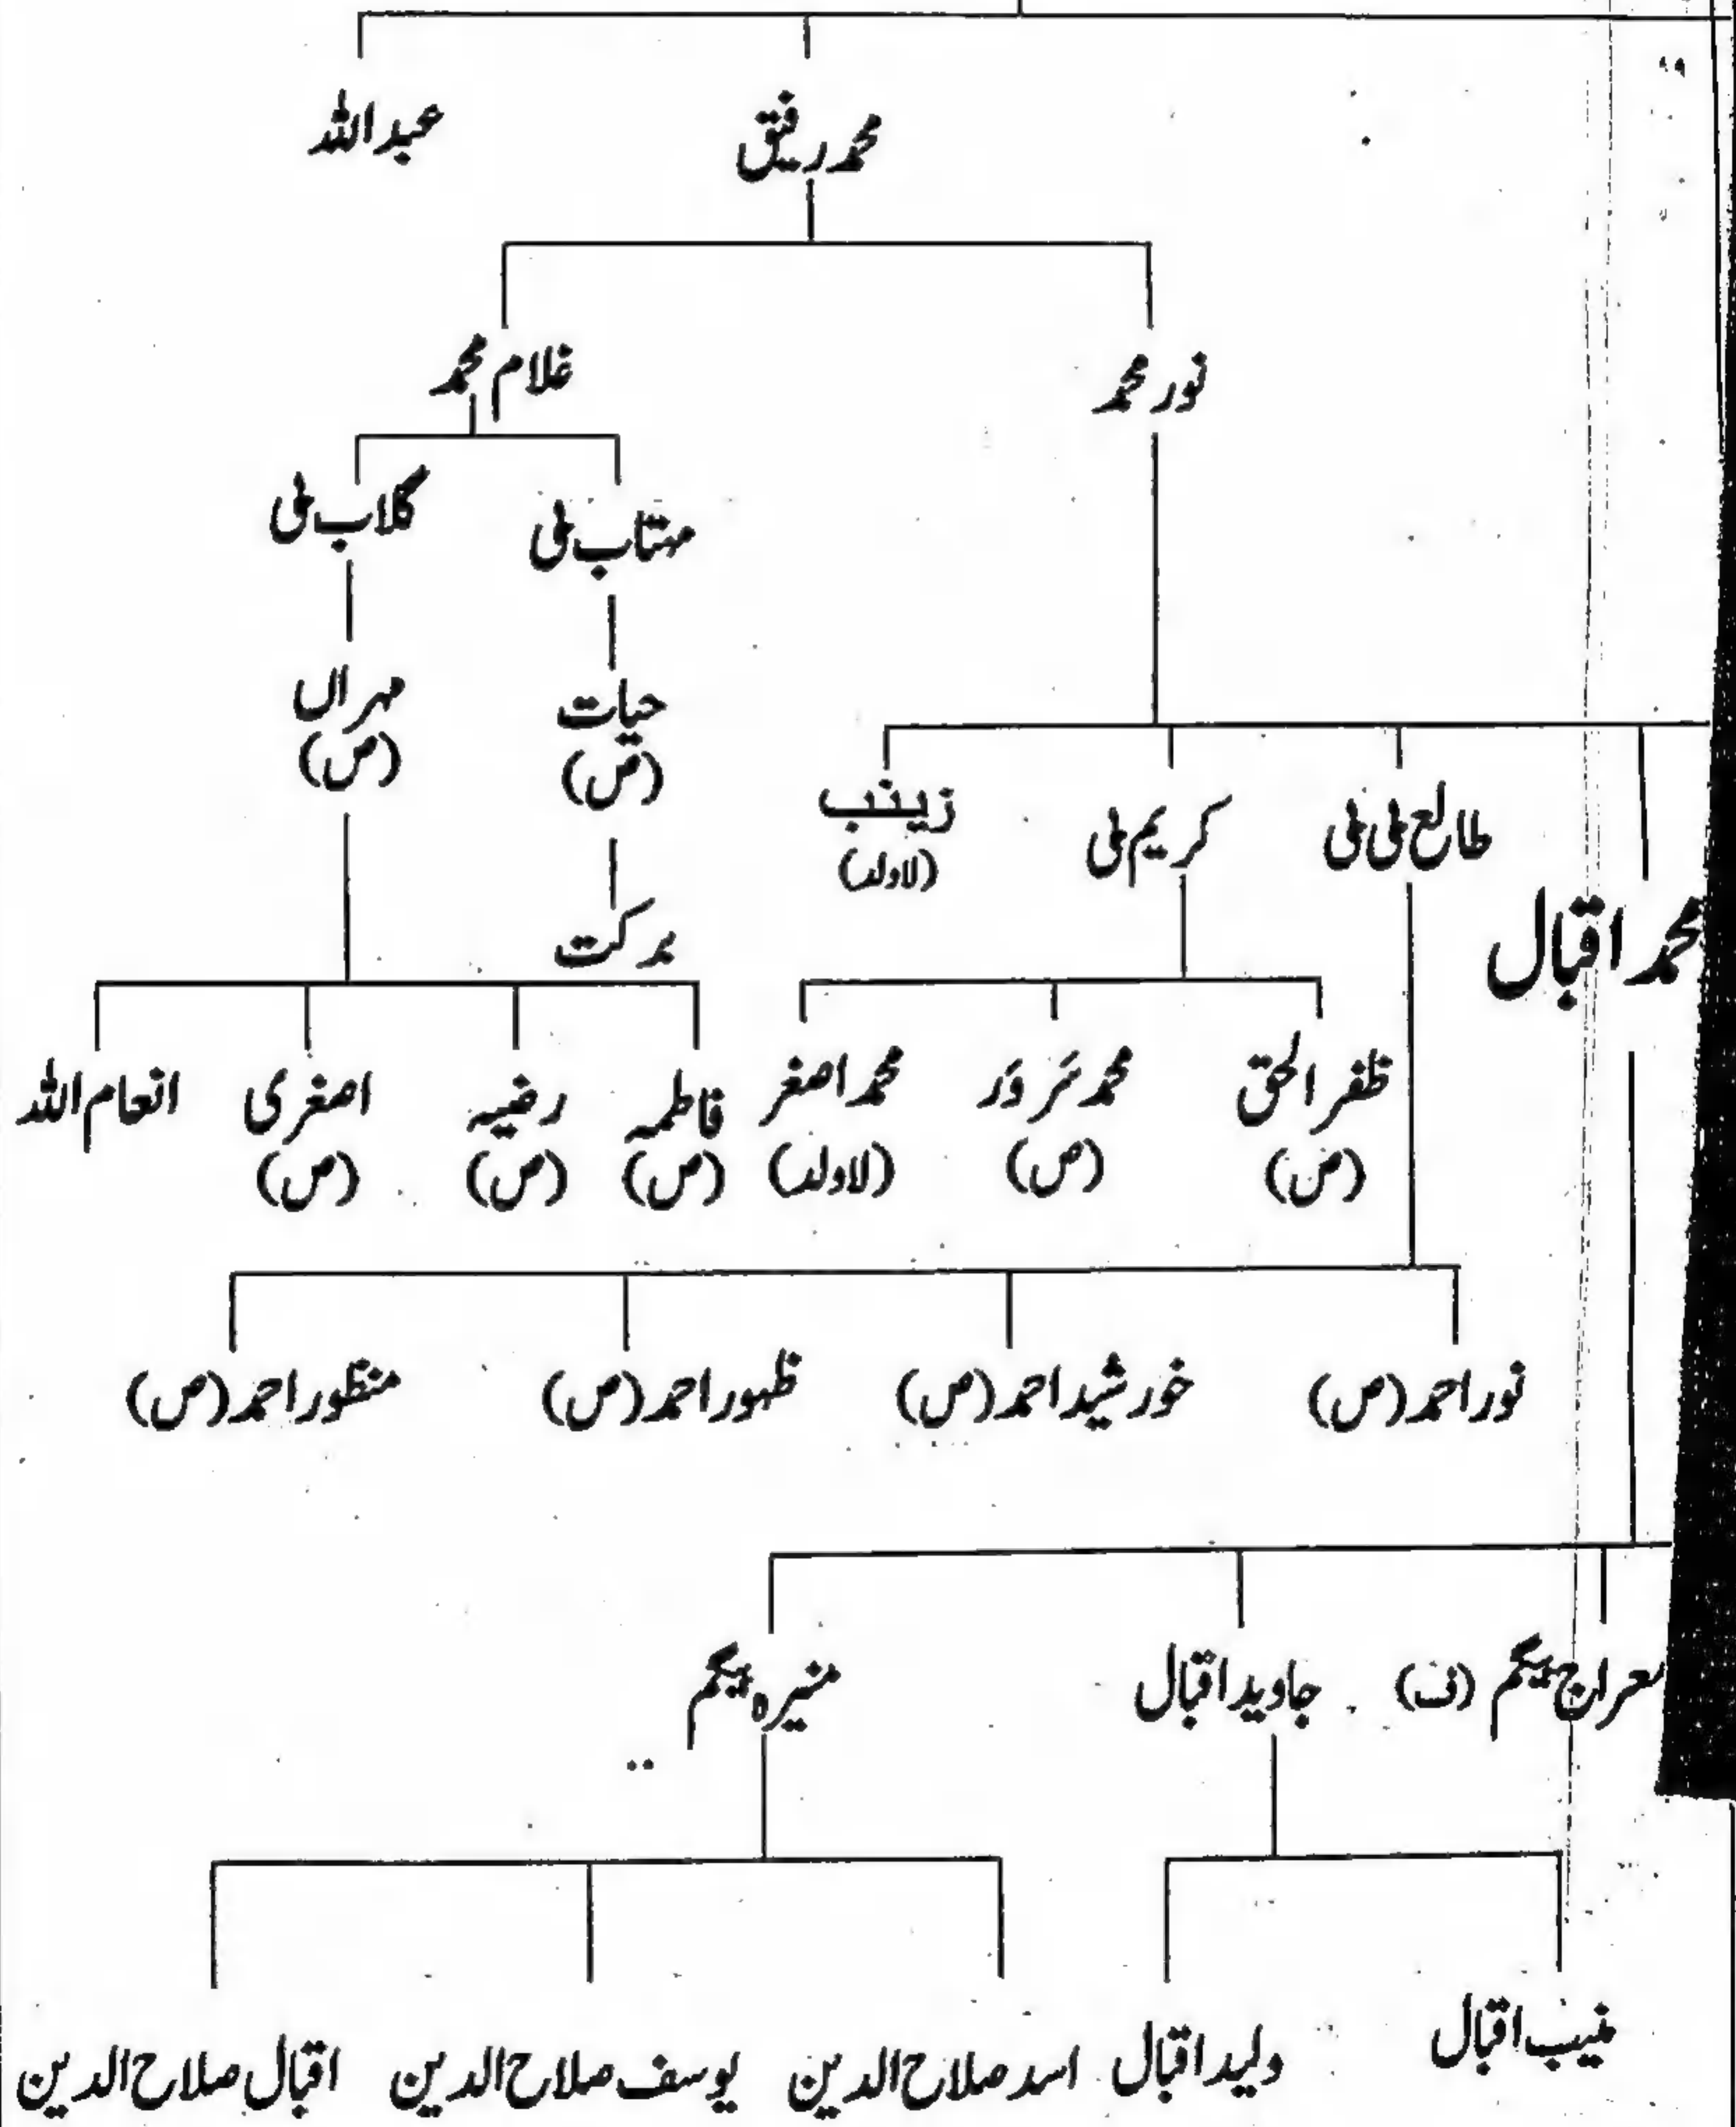 محمد رفیق عبد اللہ
نور محمد غلام محمد
مہتاب بی گلاب بی
حیات مہراں
(ص) (ص)
طالع بی بی کریم بی زینب
(لاولد)
محمد اقبال
برکت
ظفر الحق محمد سَروَر محمد اصغر فاطمہ رضیہ اصغری انعام اللہ
(ص) (ص) (لاولد) (ص) (ص) (ص)
نور احمد (ص) خورشید احمد (ص) ظہور احمد (ص) منظور احمد (ص)
معراج بیگم (ف) جاوید اقبال منیرہ بیگم
منیب اقبال ولید اقبال اسد صلاح الدین یوسف صلاح الدین اقبال صلاح الدین